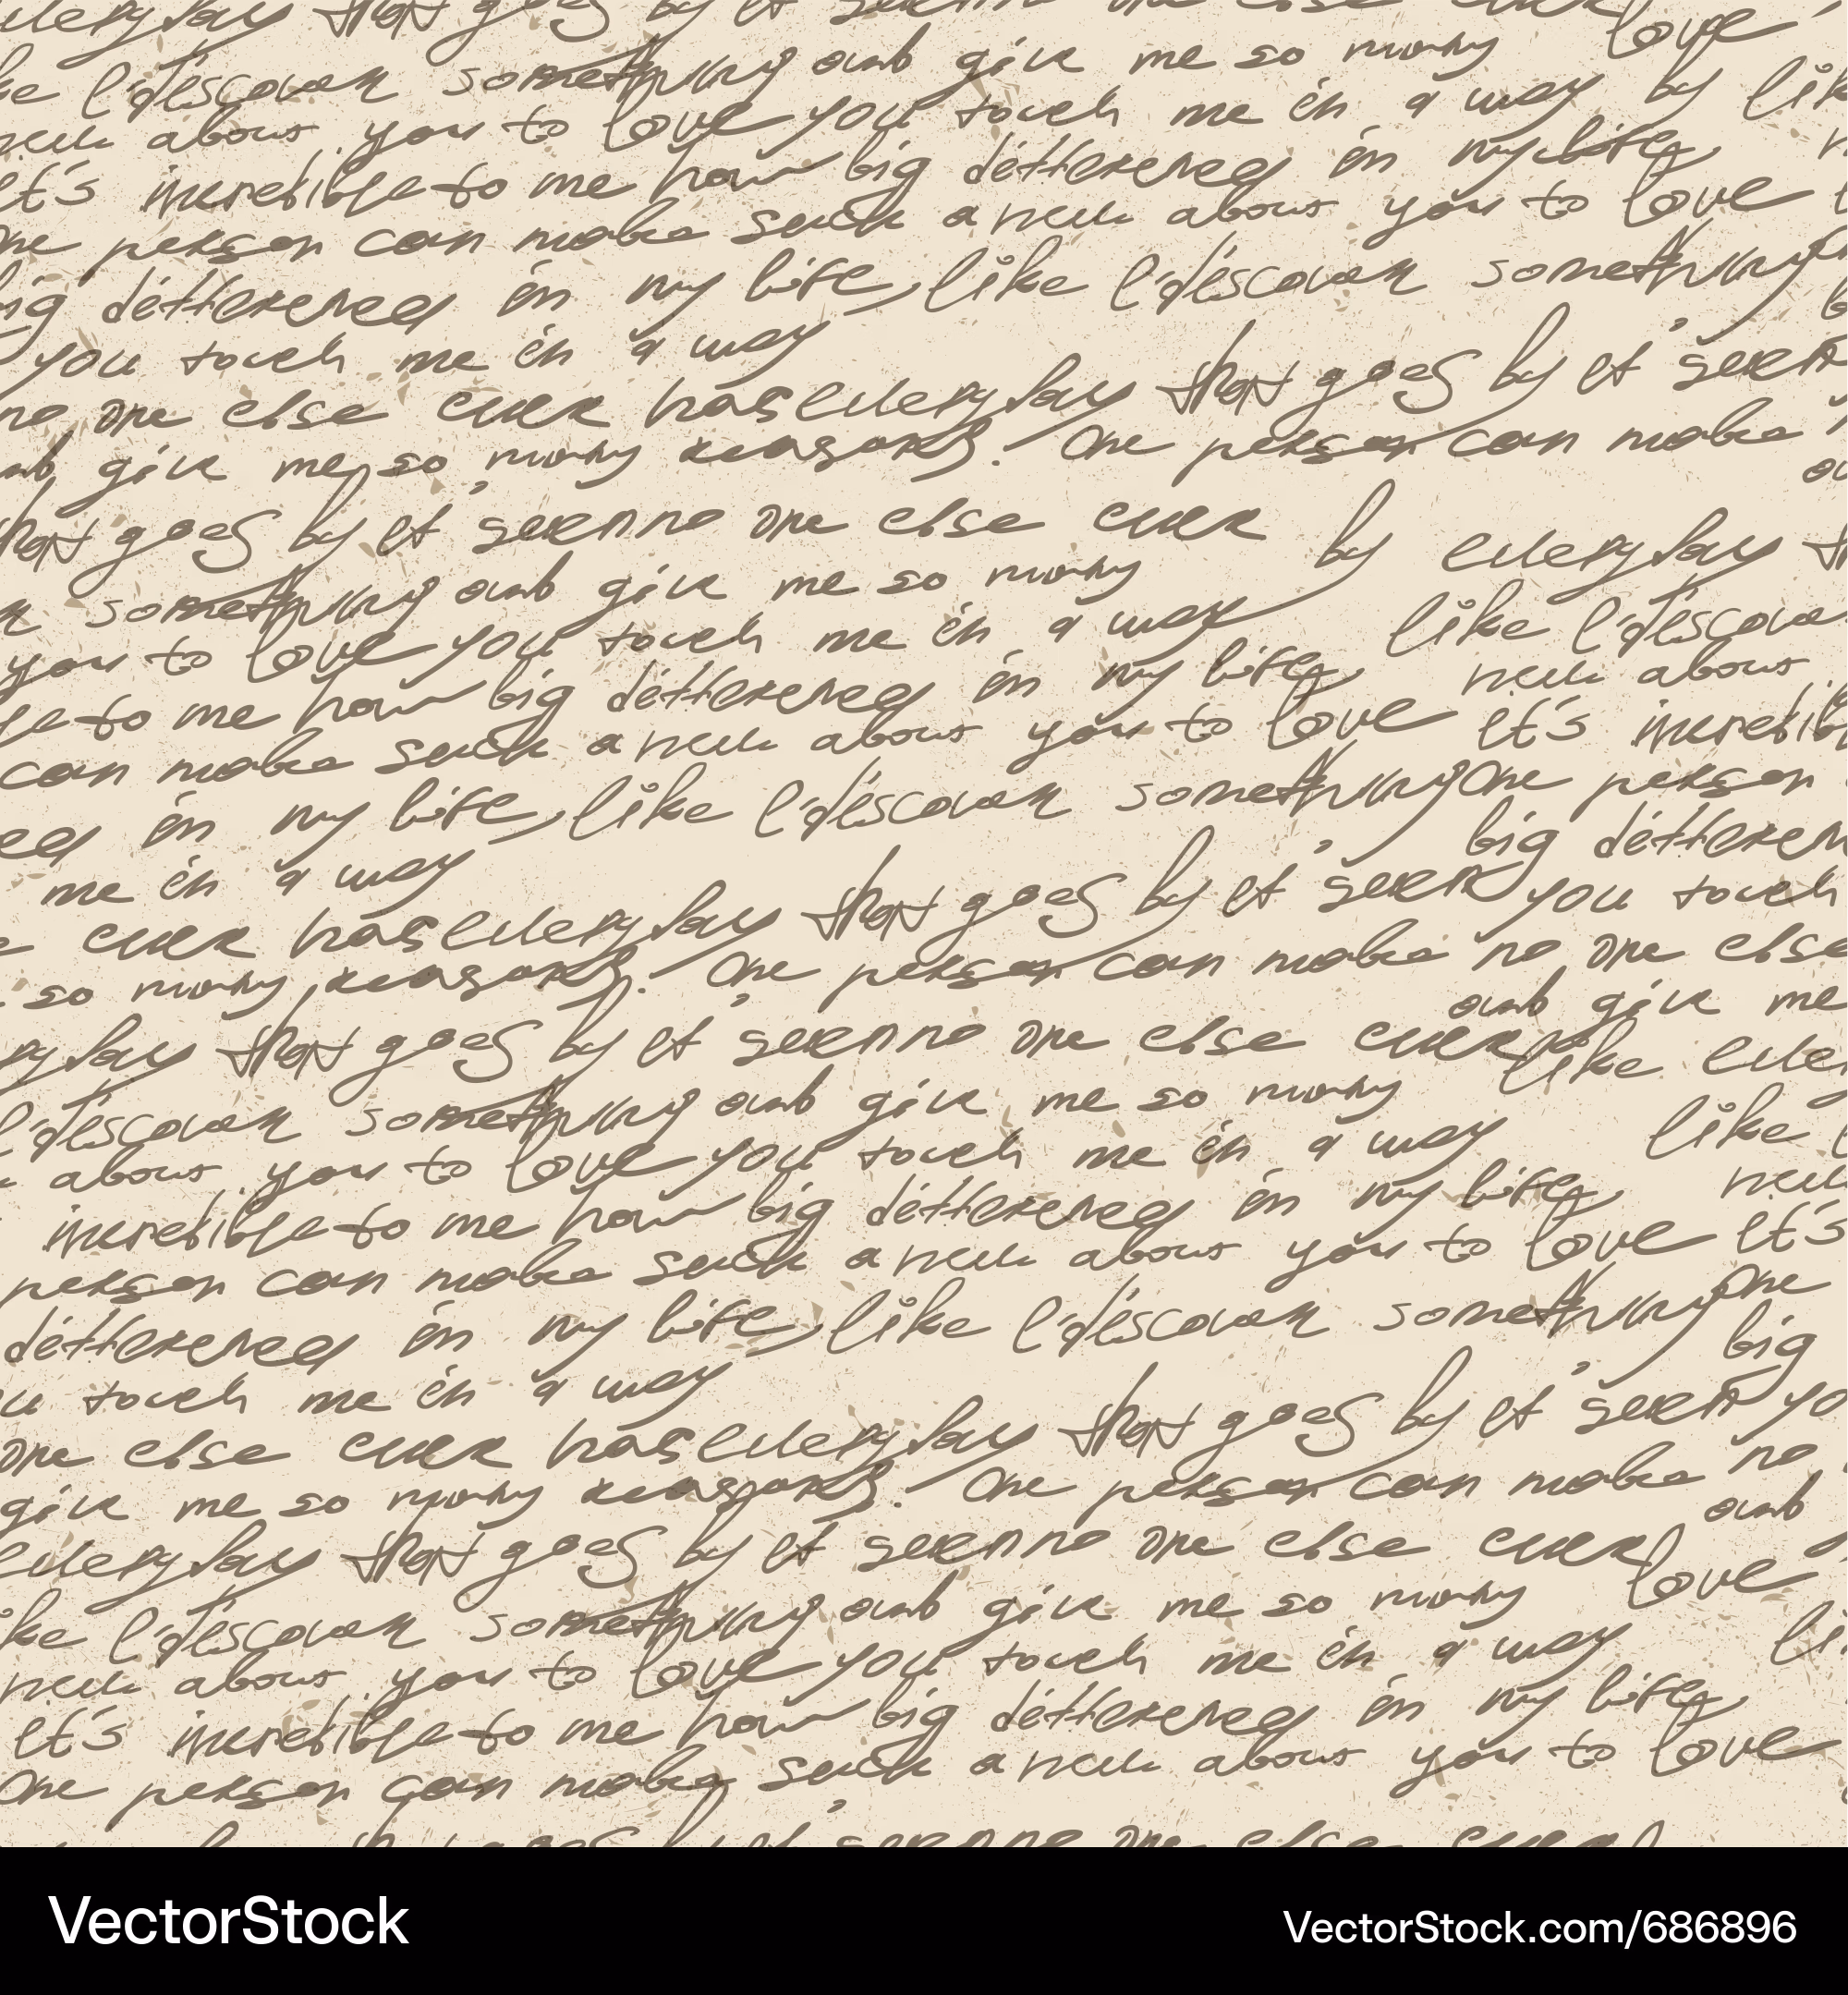 every day that goes by it seems no one else ever love
like I discover something and give me so many
new about you to love you touch me in a way by like
it's incredible to me how big difference in my life
One person can make such a new about you to love
big difference in my life, like I discover something
you touch me in a way
no one else ever has every day that goes by it seem
and give me so many reasons. One person can make
that goes by it seem no one else ever by every day
something and give me so many
you to love you touch me in a way like I discover
to me how big difference in my life new about
can make such a new about you to love it's incredible
in my life, like I discover something One person
me in a way big difference
ever has every day that goes by it seem you touch
so many reasons. One person can make no one else
day that goes by it seem no one else ever and give me
I discover something and give me so many like
about you to love you touch me in a way like
incredible to me how big difference in my life
person can make such a new about you to love it's
difference in my life, like I discover something One
touch me in a way big
one else ever has every day that goes by it seem
give me so many reasons. One person can make no
every day that goes by it seem no one else ever and
like I discover something and give me so many love
new about you to love you touch me in a way
it's incredible to me how big difference in my life
One person can make such a new about you to love
VectorStock
VectorStock.com/686896